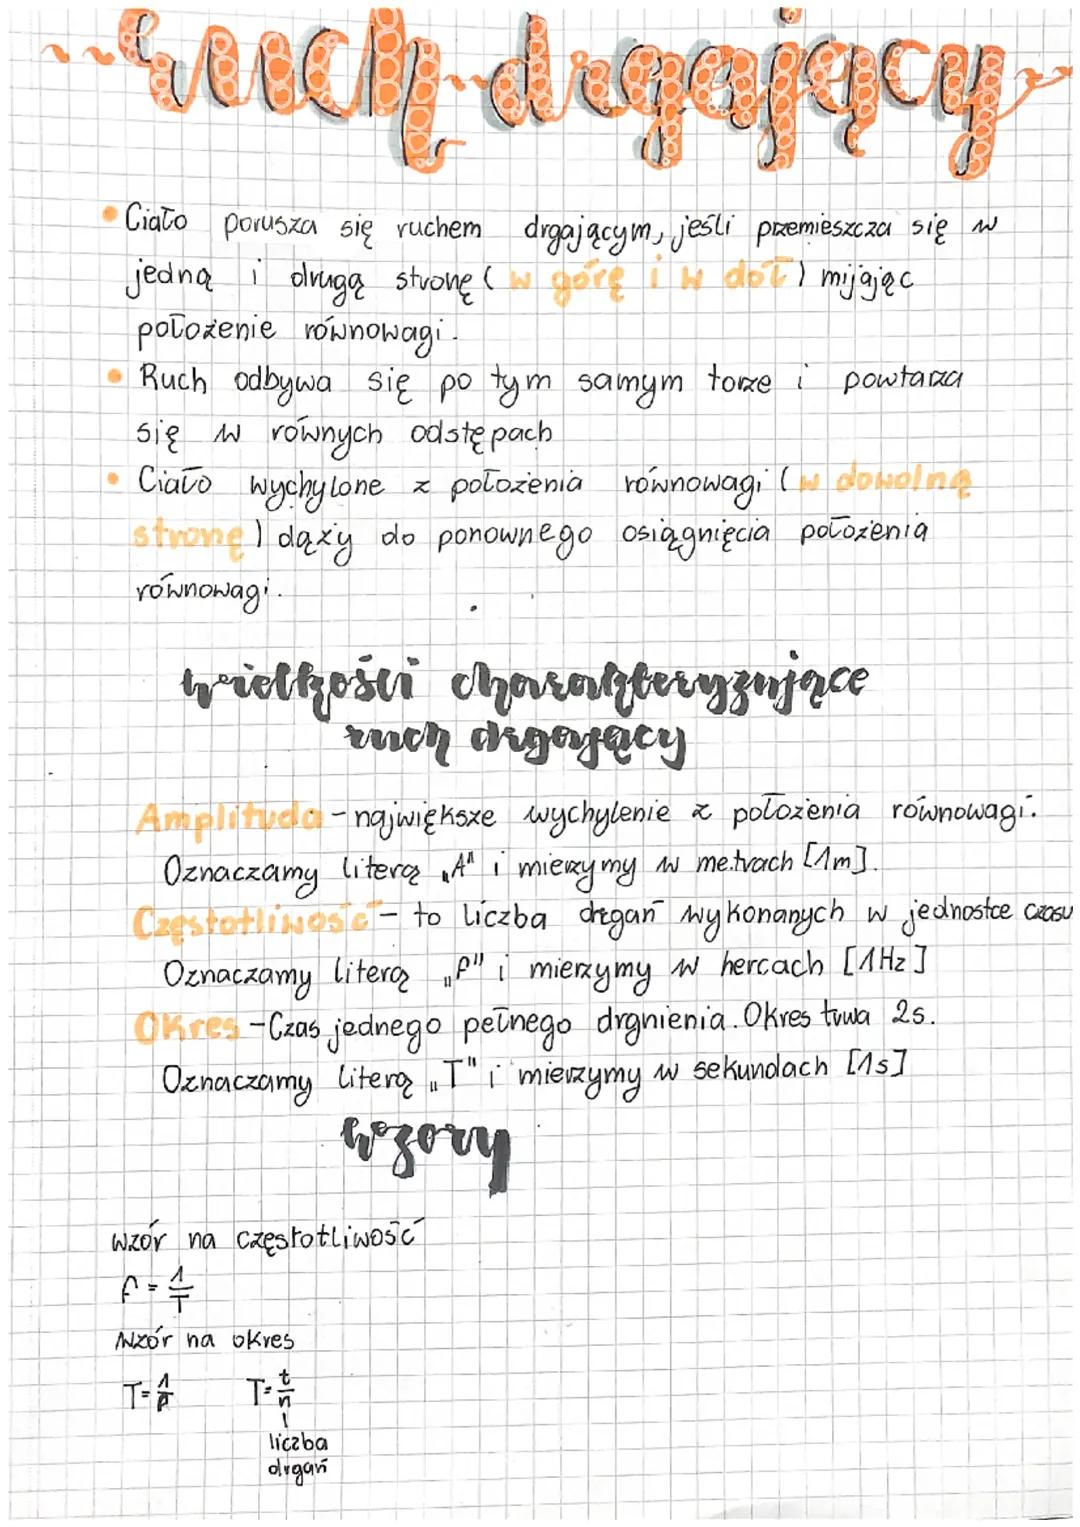 ruch drgający
• Ciało porusza się ruchem drgającym, jeśli przemieszcza się w
jedną i drugą stronę (w górę i w dół) mijając
położenie równowagi.
• Ruch odbywa się po tym samym torze i powtarza
się w równych odstępach
• Ciało wychylone z położenia równowagi (w dowolną
stronę) dąży do ponownego osiągnięcia położenia
równowagi.
wielkości charakteryzujące
ruch drgający
Amplituda - największe wychylenie z położenia równowagi.
Oznaczamy literą „A" i mierzymy w metrach [1m].
Częstotliwość - to liczba drgań wykonanych w jednostce czasu
Oznaczamy literą „f" i mierzymy w hercach [1Hz]
Okres - Czas jednego pełnego drgnienia. Okres trwa 2s.
Oznaczamy literą „T" i mierzymy w sekundach [1s]
wzory
wzór na częstotliwość
f = 1/T
Wzór na okres
T = 1/f T = t/n
liczba
drgań